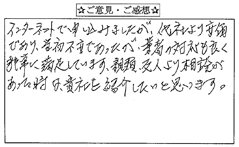 ☆ご意見・ご感想☆
インターネットで申し込みましたが、他社より高価
であり、当初不安であったが、業者の対応も良く
非常に満足しています。親類、友人より相談が
あった時は、貴社を紹介したいと思います。